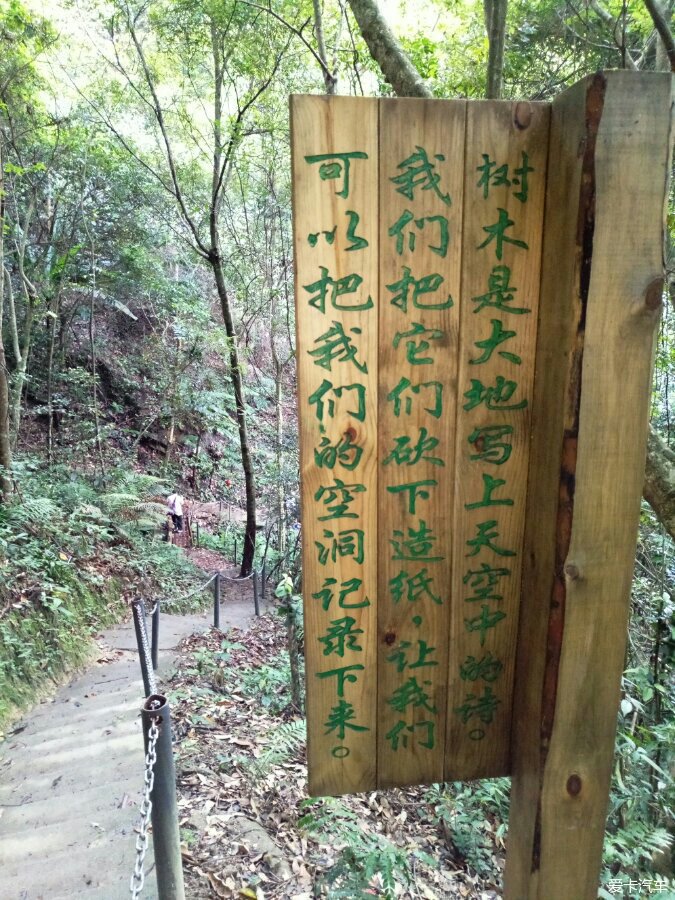 树木是大地写上天空中的诗。
我们把它们砍下造纸，让我们
可以把我们的空洞记录下来。
爱卡汽车